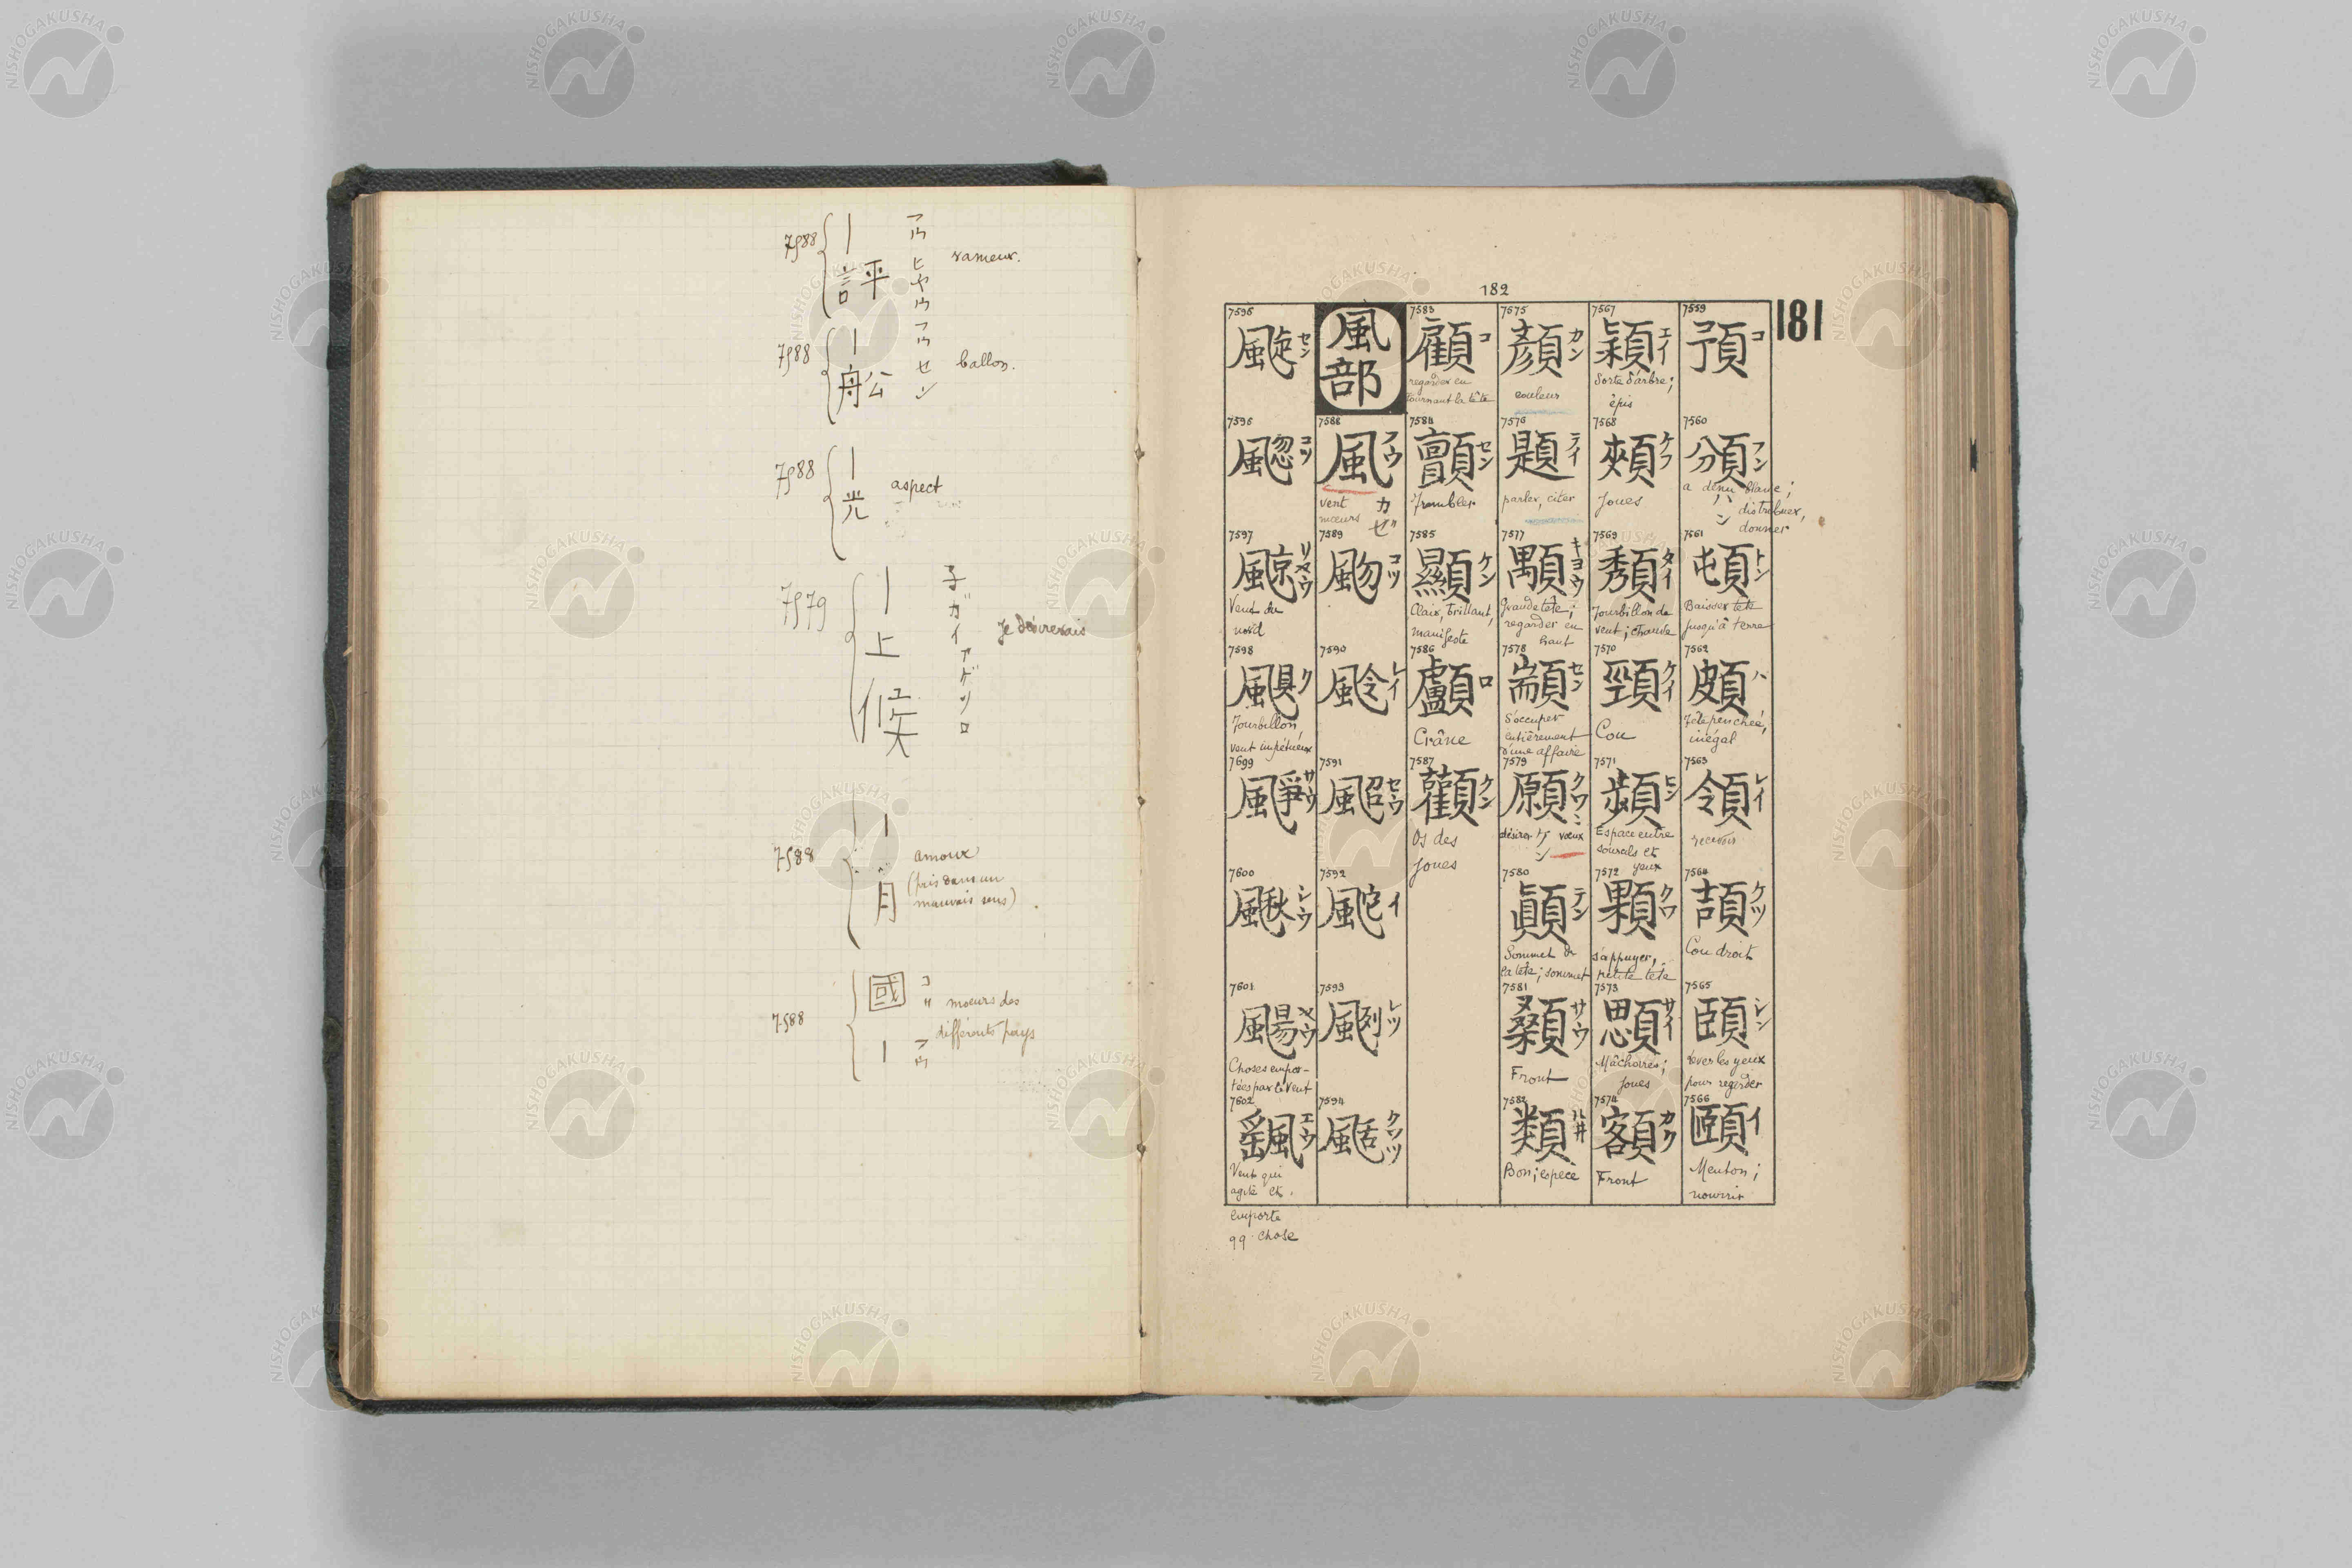 7588
｜評
フウヒヤウ
rameur.
7588
｜舩
フウセン
ballon.
7588
｜光
aspect
7579
｜上候
子ガイアゲソロ
Je désirerais
7588
｜
月
amour
(pris dans un
mauvais sens)
7588
國｜
コ〃フウ
moeurs des
différents pays
182
181
7559
コ
7560
フン
ハン
a dénu blanc;
distribuer,
donner
7561
頓
トン
Baisser tête
jusqu'à terre
7562
頗
ハ
Tête penchée,
inégal
7563
領
レイ
recevoir
7564
頡
ケツ
Cou droit
7565
シン
lever les yeux
pour regarder
7566
頤
イ
Menton;
nourrir
7567
穎
エイ
Sorte d'arbre;
épis
7568
頰
ケフ
Joues
7569
タイ
Tourbillon de
vent; chauve
7570
頸
ケイ
Cou
7571
頻
ヒン
Espace entre
sourcils et
yeux
7572
顆
クワ
s'appuyer,
petite tête
7573
顋
サイ
Mâchoires;
joues
7574
額
カク
Front
7575
顏
カン
couleur
7576
題
テイ
parler, citer
7577
顒
キヨウ
Grande tête;
regarder en
haut
7578
顓
セン
S'occuper
entièrement
d'une affaire
7579
願
クワン
ゲン
désirer
voeux
7580
顚
テン
Sommet de
la tête; sommet
7581
顙
サウ
Front
7582
類
ルヰ
Bon; espèce
7583
顧
コ
regarder en
tournant la tête
7584
顫
セン
Trembler
7585
顯
ケン
Clair, brillant,
manifeste
7586
顱
ロ
Crâne
7587
顴
クン
Os des
joues
風部
7588
風
フウ
カゼ
vent
moeurs
7589
コツ
7590
レイ
7591
セウ
7592
イ
7593
颲
レツ
7594
颳
クワツ
7595
セン
7596
コツ
7597
リヤウ
Vent du
nord
7598
颶
ク
Tourbillon,
vent impétueux
7699
サウ
7600
シウ
7601
颺
ヤウ
Choses empor-
tées par le vent
7602
颻
エウ
Vent qui
agite et
emporte
qq. chose